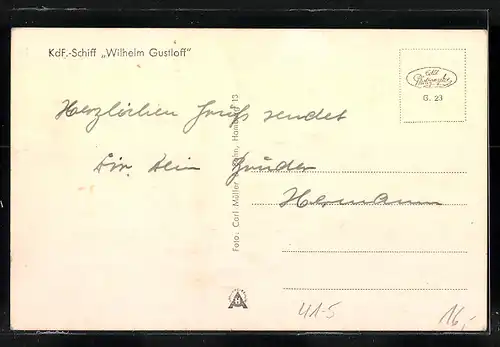 KdF.-Schiff „Wilhelm Gustloff"
G. 23
Herzlichen Gruß sendet
Dir Dein Bruder
Hermann
Foto: Carl Müller & Sohn, Hamburg 13
41-5
16,-